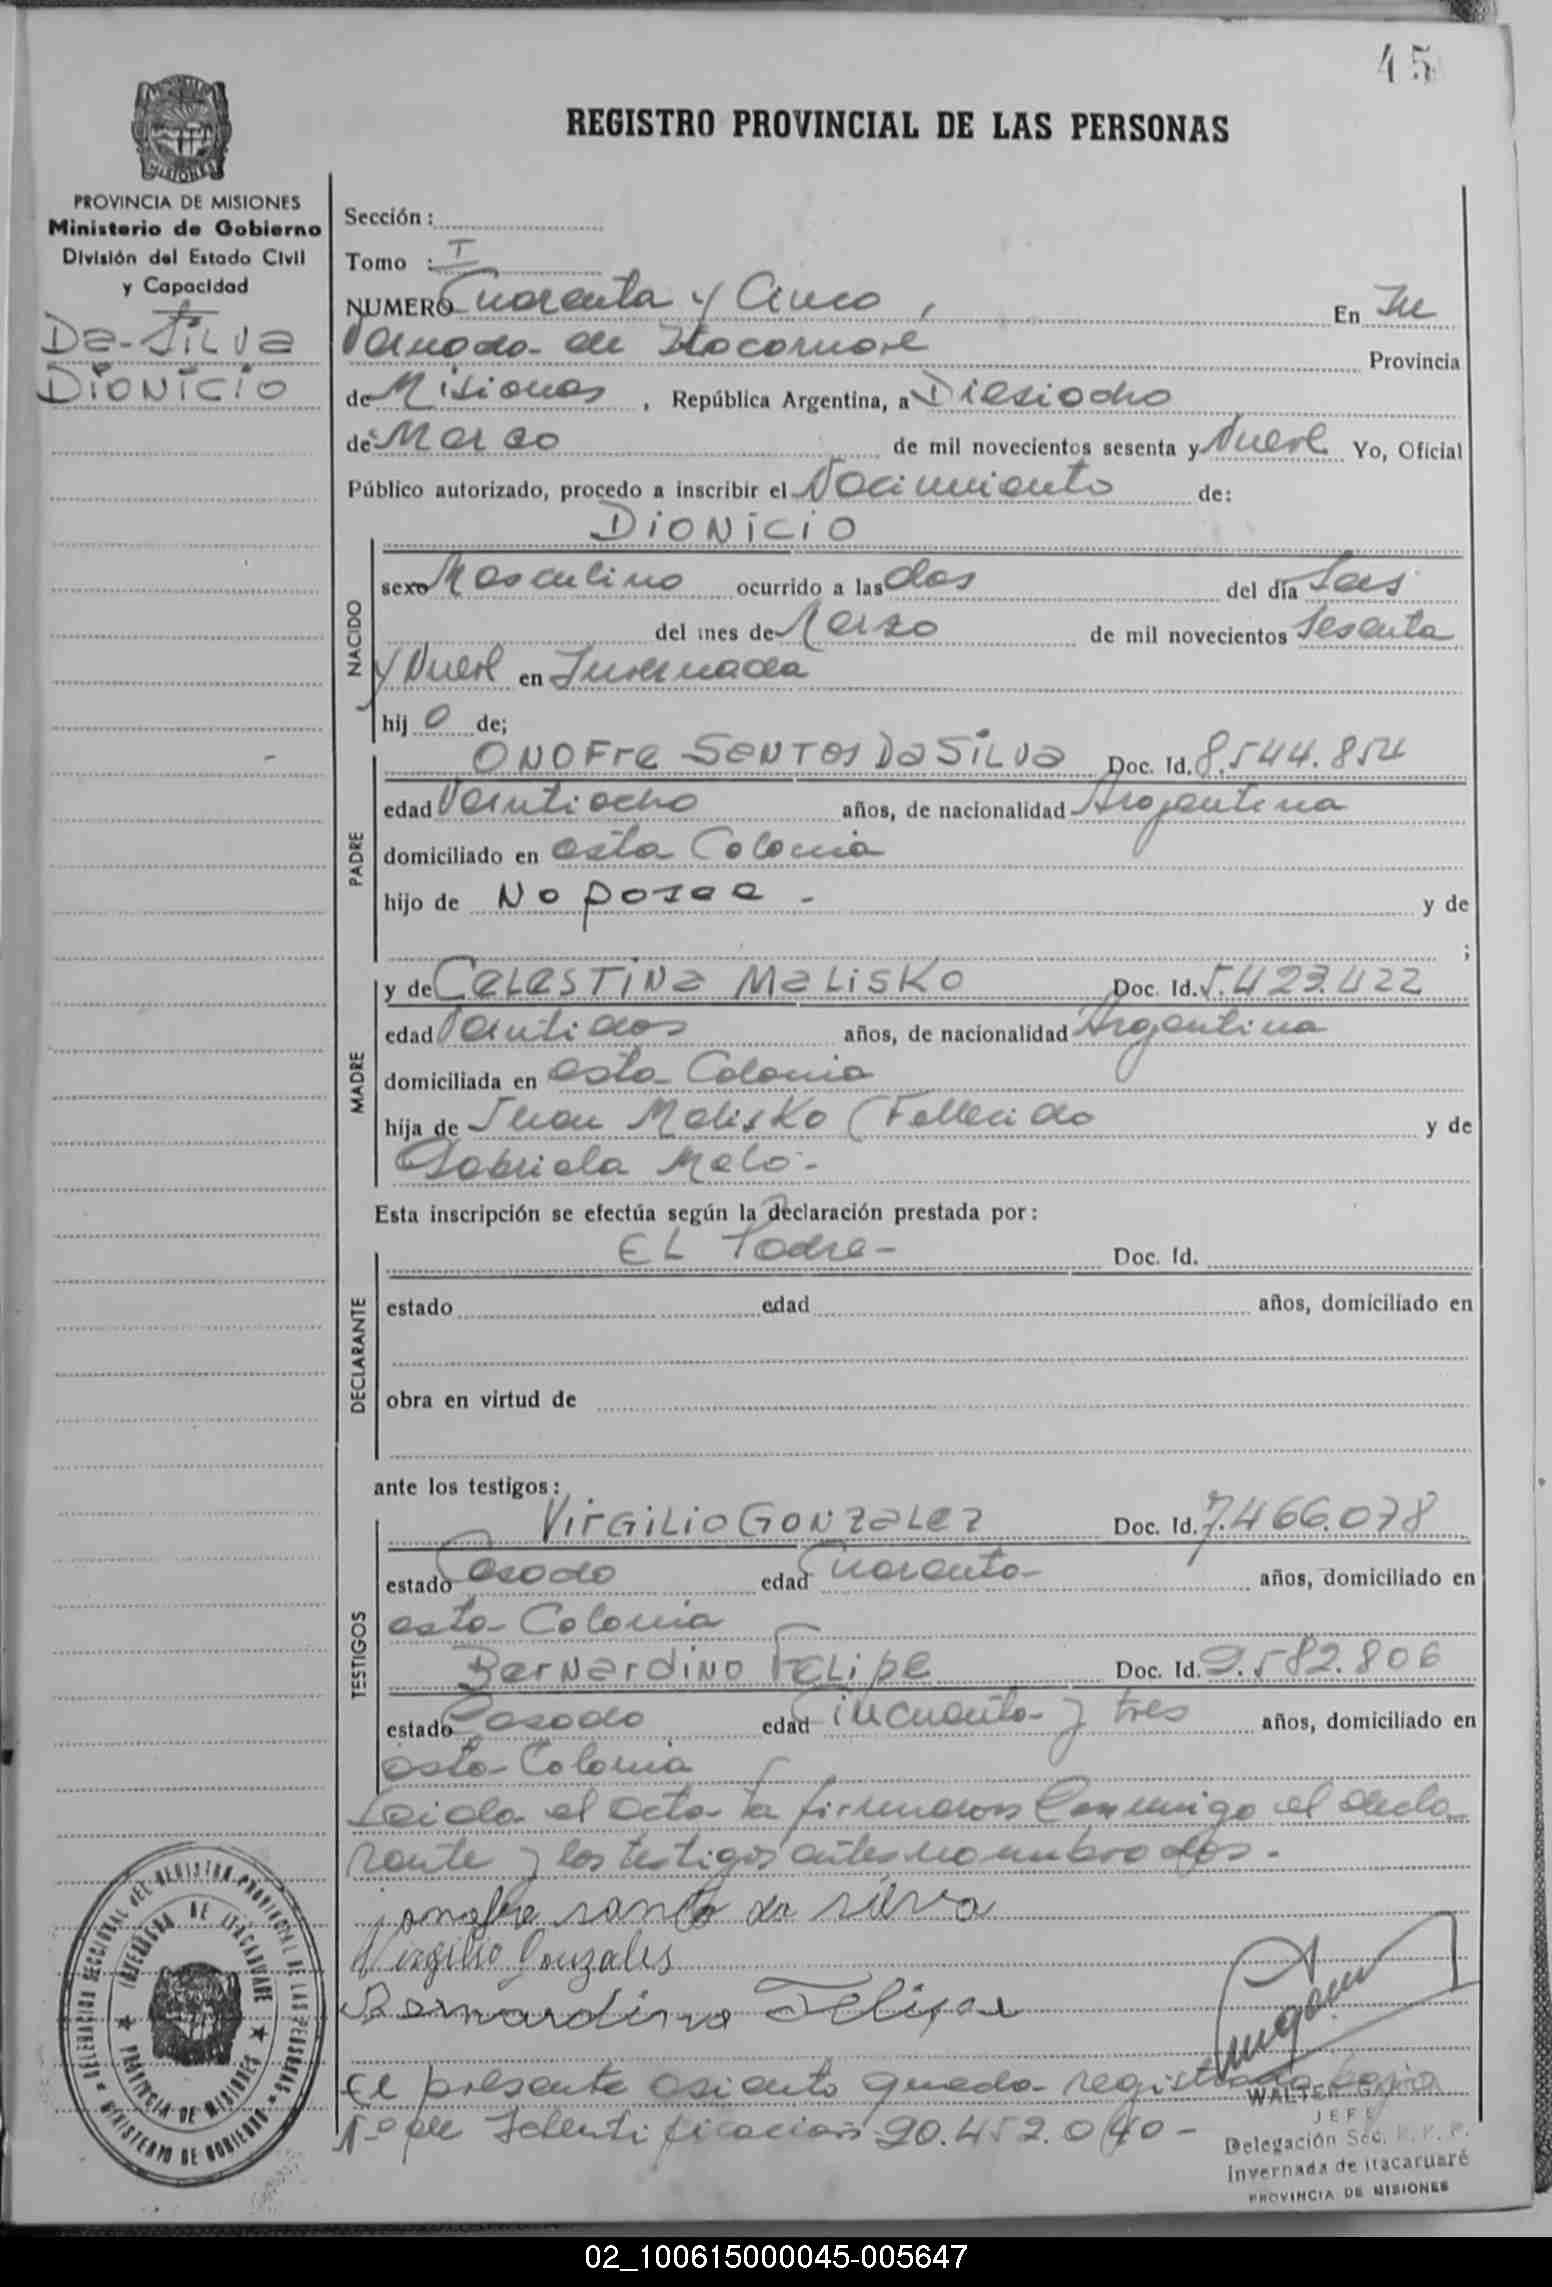 45
REGISTRO PROVINCIAL DE LAS PERSONAS
MISIONES
PROVINCIA DE MISIONES
Ministerio de Gobierno
División del Estado Civil
y Capacidad
Da-Silva
Dionicio
Sección :
Tomo : I
NUMERO Cuarenta y Cinco, En In
vernada de Itacaruaré Provincia
de Misiones, República Argentina, a Diesiocho
de Marzo de mil novecientos sesenta y Nueve Yo, Oficial
Público autorizado, procedo a inscribir el Nacimiento de:
NACIDO
Dionicio
sexo Masculino ocurrido a las dos del día Seis
del mes de Marzo de mil novecientos Sesenta
y Nueve en Invernada
hijo de;
PADRE
Onofre Santos Da Silva Doc. Id. 8.544.854
edad Veintiocho años, de nacionalidad Argentina
domiciliado en esta Colonia
hijo de No posee - y de
;
MADRE
y de Celestina Malisko Doc. Id. 5.423.422
edad Veintidos años, de nacionalidad Argentina
domiciliada en esta Colonia
hija de Juan Malisko (Fallecido y de
Gabriela Melo -
Esta inscripción se efectúa según la declaración prestada por:
DECLARANTE
El Padre - Doc. Id.
estado edad años, domiciliado en
obra en virtud de
ante los testigos:
TESTIGOS
Virgilio Gonzalez Doc. Id. 7.466.078
estado Casado edad Cuarenta años, domiciliado en
esta Colonia
Bernardino Felipe Doc. Id. 9.582.806
estado Casado edad Cincuenta y tres años, domiciliado en
esta Colonia
Leida el Acta la firmaron Conmigo el decla
rante y los testigos antes nombrados -
onofre santo da silva
Virgilio Gonzales
Bernardino Felipe
El presente asiento queda registrado bajo
Nº de Identificacion 20.452.040 -
WALTER
JEFE
Delegación Sec. R. P. P.
Invernada de Itacaruaré
PROVINCIA DE MISIONES
DELEGACION SECCIONAL DEL REGISTRO PROVINCIAL DE LAS PERSONAS
MINISTERIO DE GOBIERNO
INVERNADA DE ITACARUARE
PROVINCIA DE MISIONES
02_100615000045-005647